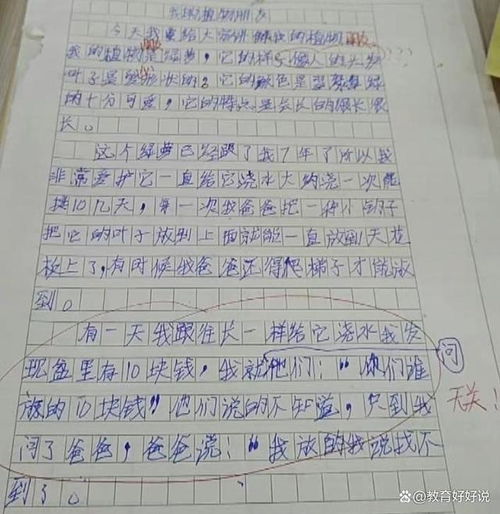 我的植物朋友
今天我要给大家讲 的植物
我的植物是绿萝，它的样 人的头发
叶子是爱心状的。它的颜色是
的十分可爱，它的特点是会长的很长很
长。
这个绿萝已经跟了我7年了所以我
非常爱护它一直给它浇水大约浇一次能
换10几天，第一次我爸爸把一种小钩子
把它的叶子放到上面 能一直放到天花
板上了，有时候我爸爸还得爬梯子才能放
到。
有一天我跟往长一样给它浇水我发
现盆里有10块钱，我就他们：“你们谁
问
放的10块钱”他们说的不知道，只到我
无关！
问了爸爸，爸爸说：“我放的我说找不
到了。
@教育好好说